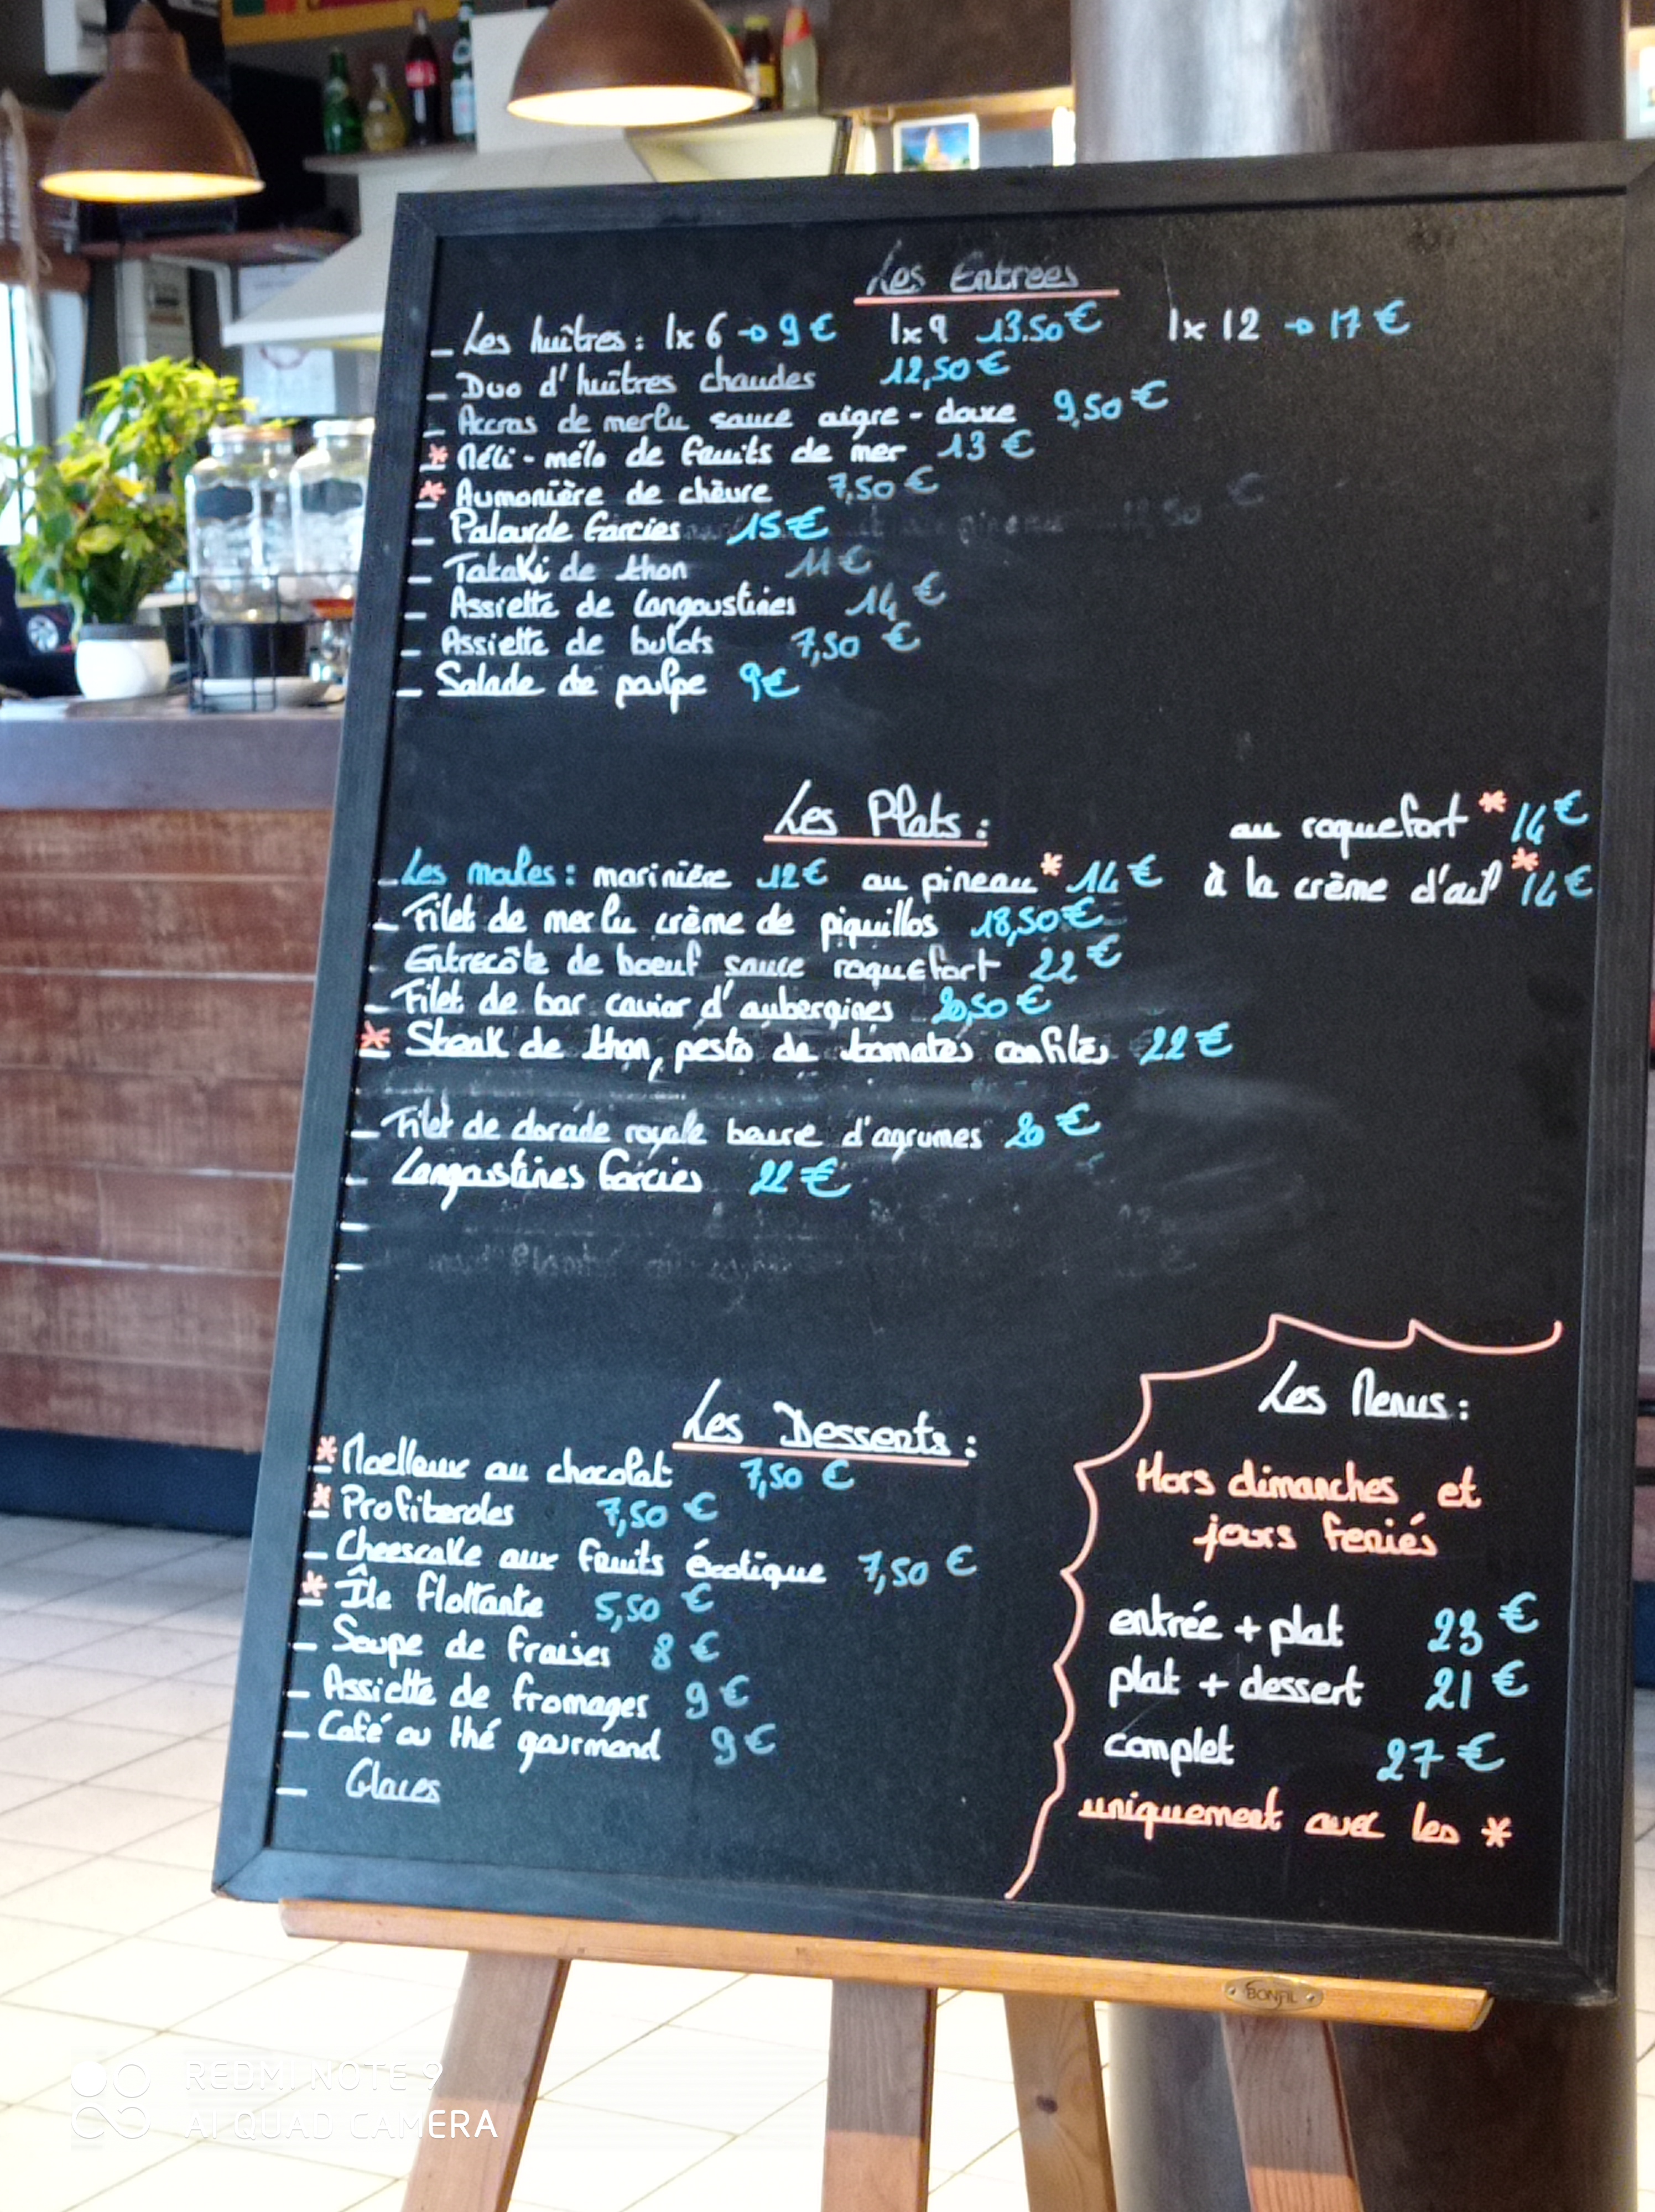 Les Entrées
_ Les huîtres : 1x6 → 9€ 1x9 13.50€ 1x12 → 17€
_ Duo d'huîtres chaudes 12,50€
_ Accras de merlu sauce aigre-douce 9,50€
* Méli-mélo de fruits de mer 13€
* Aumonière de chèvre 7,50€
_ Palourde farcies 15€
_ Tataki de thon 11€
_ Assiette de langoustines 14€
_ Assiette de bulots 7,50€
_ Salade de poulpe 9€
Les Plats :
au roquefort * 14€
_ Les moules : marinière 12€ au pineau * 14€ à la crème d'ail * 14€
_ Filet de merlu crème de piquillos 18,50€
- Entrecôte de boeuf sauce roquefort 22€
_ Filet de bar caviar d'aubergines 20,50€
* Steak de thon, pesto de tomates confites 22€
_ Filet de dorade royale beurre d'agrumes 20€
_ Langoustines farcies 22€
Les Desserts :
* Moelleux au chocolat 7,50€
* Profiteroles 7,50€
_ Cheescake aux fruits éxotique 7,50€
* Île flottante 5,50€
_ Soupe de fraises 8€
_ Assiette de fromages 9€
_ Café ou thé gourmand 9€
_ Glaces
Les Menus :
Hors dimanches et
jours feriés
entrée + plat 23€
plat + dessert 21€
complet 27€
uniquement avec les *
BONFIL
REDMI NOTE 9
AI QUAD CAMERA